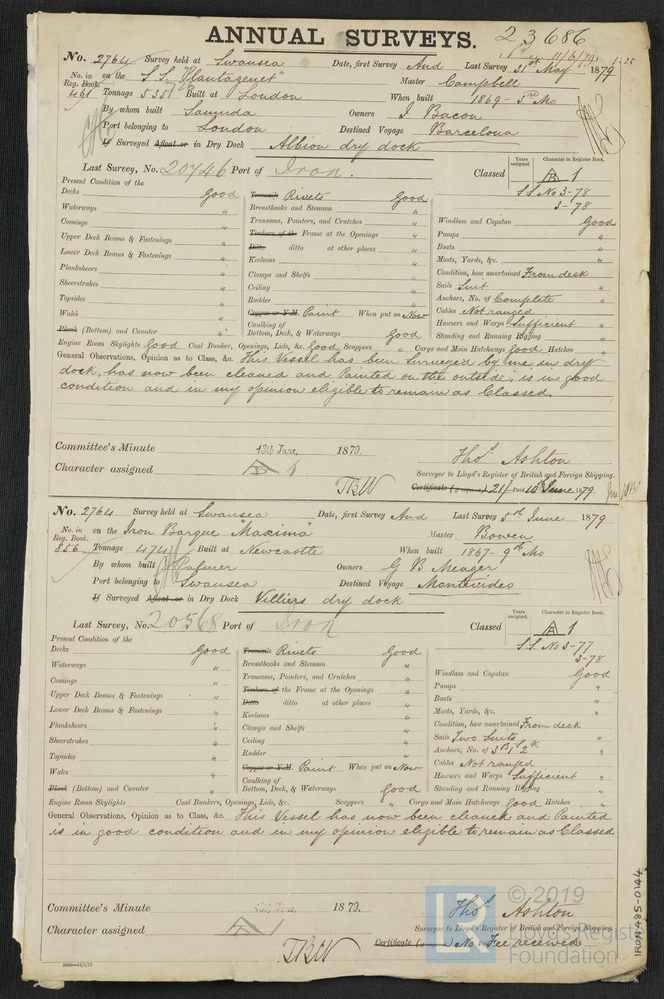 ANNUAL SURVEYS.
23686
No. 2764 Survey held at Swansea Date, first Survey And Last Survey 31st May 1879
No. in Reg. Book. 461 on the S.S. "Plantagenet" Master Campbell
Tonnage 535 Built at London When built 1869 - 3rd Mo
By whom built Samuda Owners J. Bacon
Port belonging to London Destined Voyage Barcelona
If Surveyed Afloat or in Dry Dock Albion dry dock
Last Survey, No. 20746 Port of Iron. Classed Years assigned. Character in Register Book. A 1
S.S. No 3-78
3-78
Present Condition of the
Decks Good
Waterways "
Comings "
Upper Deck Beams & Fastenings "
Lower Deck Beams & Fastenings "
Planksheers "
Sheerstrakes "
Topsides "
Wales "
Plank (Bottom) and Counter "
Treenails Rivets Good
Breasthooks and Stemson "
Transoms, Pointers, and Crutches "
Timbers of the Frame at the Openings "
Ditto ditto at other places "
Keelsons "
Clamps and Shelfs "
Ceiling "
Rudder "
Copper or Y.M. Paint When put on Now
Caulking of Bottom, Deck, & Waterways Good
Windlass and Capstan Good
Pumps "
Boats "
Masts, Yards, &c. "
Condition, how ascertained From deck
Sails Suit "
Anchors, No. of Complete "
Cables Not ranged
Hawsers and Warps Sufficient "
Standing and Running Rigging "
Engine Room Skylights Good Coal Bunker, Openings, Lids, &c. Good Scuppers " Cargo and Main Hatchways Good Hatches "
General Observations, Opinion as to Class, &c. This Vessel has been surveyed by me in dry
dock, has now been cleaned and Painted on the outside, is in good
condition and in my opinion eligible to remain as Classed.
Committee's Minute 13th June, 1879.
Character assigned A 1
Thos Ashton
Surveyor to Lloyd's Register of British and Foreign Shipping.
Certificate 21/- 10th June 1879
No. 2764 Survey held at Swansea Date, first Survey And Last Survey 5th June 1879
No. in Reg. Book. 856 on the Iron Barque "Maxima" Master Bowen
Tonnage 474 Built at Newcastle When built 1867 - 9th Mo
By whom built Palmer Owners G B Meager
Port belonging to Swansea Destined Voyage Montevideo
If Surveyed Afloat or in Dry Dock Villiers dry dock
Last Survey, No. 20568 Port of Iron Classed Years assigned. Character in Register Book. A 1
S.S. No 3-77
3-78
Present Condition of the
Decks Good
Waterways "
Comings "
Upper Deck Beams & Fastenings "
Lower Deck Beams & Fastenings "
Planksheers "
Sheerstrakes "
Topsides "
Wales "
Plank (Bottom) and Counter "
Treenails Rivets Good
Breasthooks and Stemson "
Transoms, Pointers, and Crutches "
Timbers of the Frame at the Openings "
Ditto ditto at other places "
Keelsons "
Clamps and Shelfs "
Ceiling "
Rudder "
Copper or Y.M. Paint When put on Now
Caulking of Bottom, Deck, & Waterways Good
Windlass and Capstan Good
Pumps "
Boats "
Masts, Yards, &c. "
Condition, how ascertained From deck
Sails Two Suits "
Anchors, No. of "
Cables Not ranged
Hawsers and Warps Sufficient "
Standing and Running Rigging "
Engine Room Skylights Coal Bunkers, Openings, Lids, &c. Scuppers " Cargo and Main Hatchways Good Hatches "
General Observations, Opinion as to Class, &c. This Vessel has now been cleaned and Painted
is in good condition and in my opinion eligible to remain as Classed
Committee's Minute 13th June, 1879.
Character assigned A 1
Thos Ashton
Surveyor to Lloyd's Register of British and Foreign Shipping.
Certificate No Fee received
IRON485-0144
LR © 2019
Lloyd's Register
Foundation